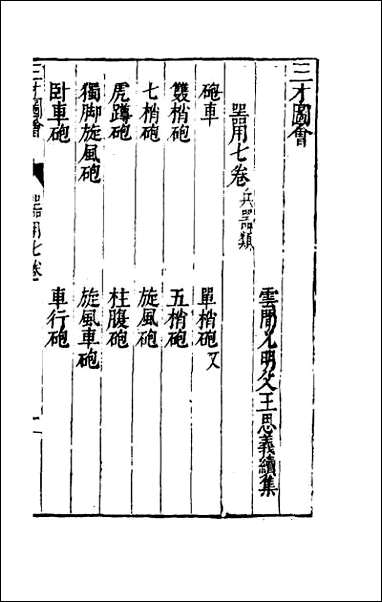 三才圖會
雲間允明父王思義續集
器用七卷 兵器類
砲車 單梢砲 又
雙梢砲 五梢砲
七梢砲 旋風砲
虎蹲砲 柱腹砲
獨脚旋風砲 旋風車砲
卧車砲 車行砲
三才圖會 器用七卷 一